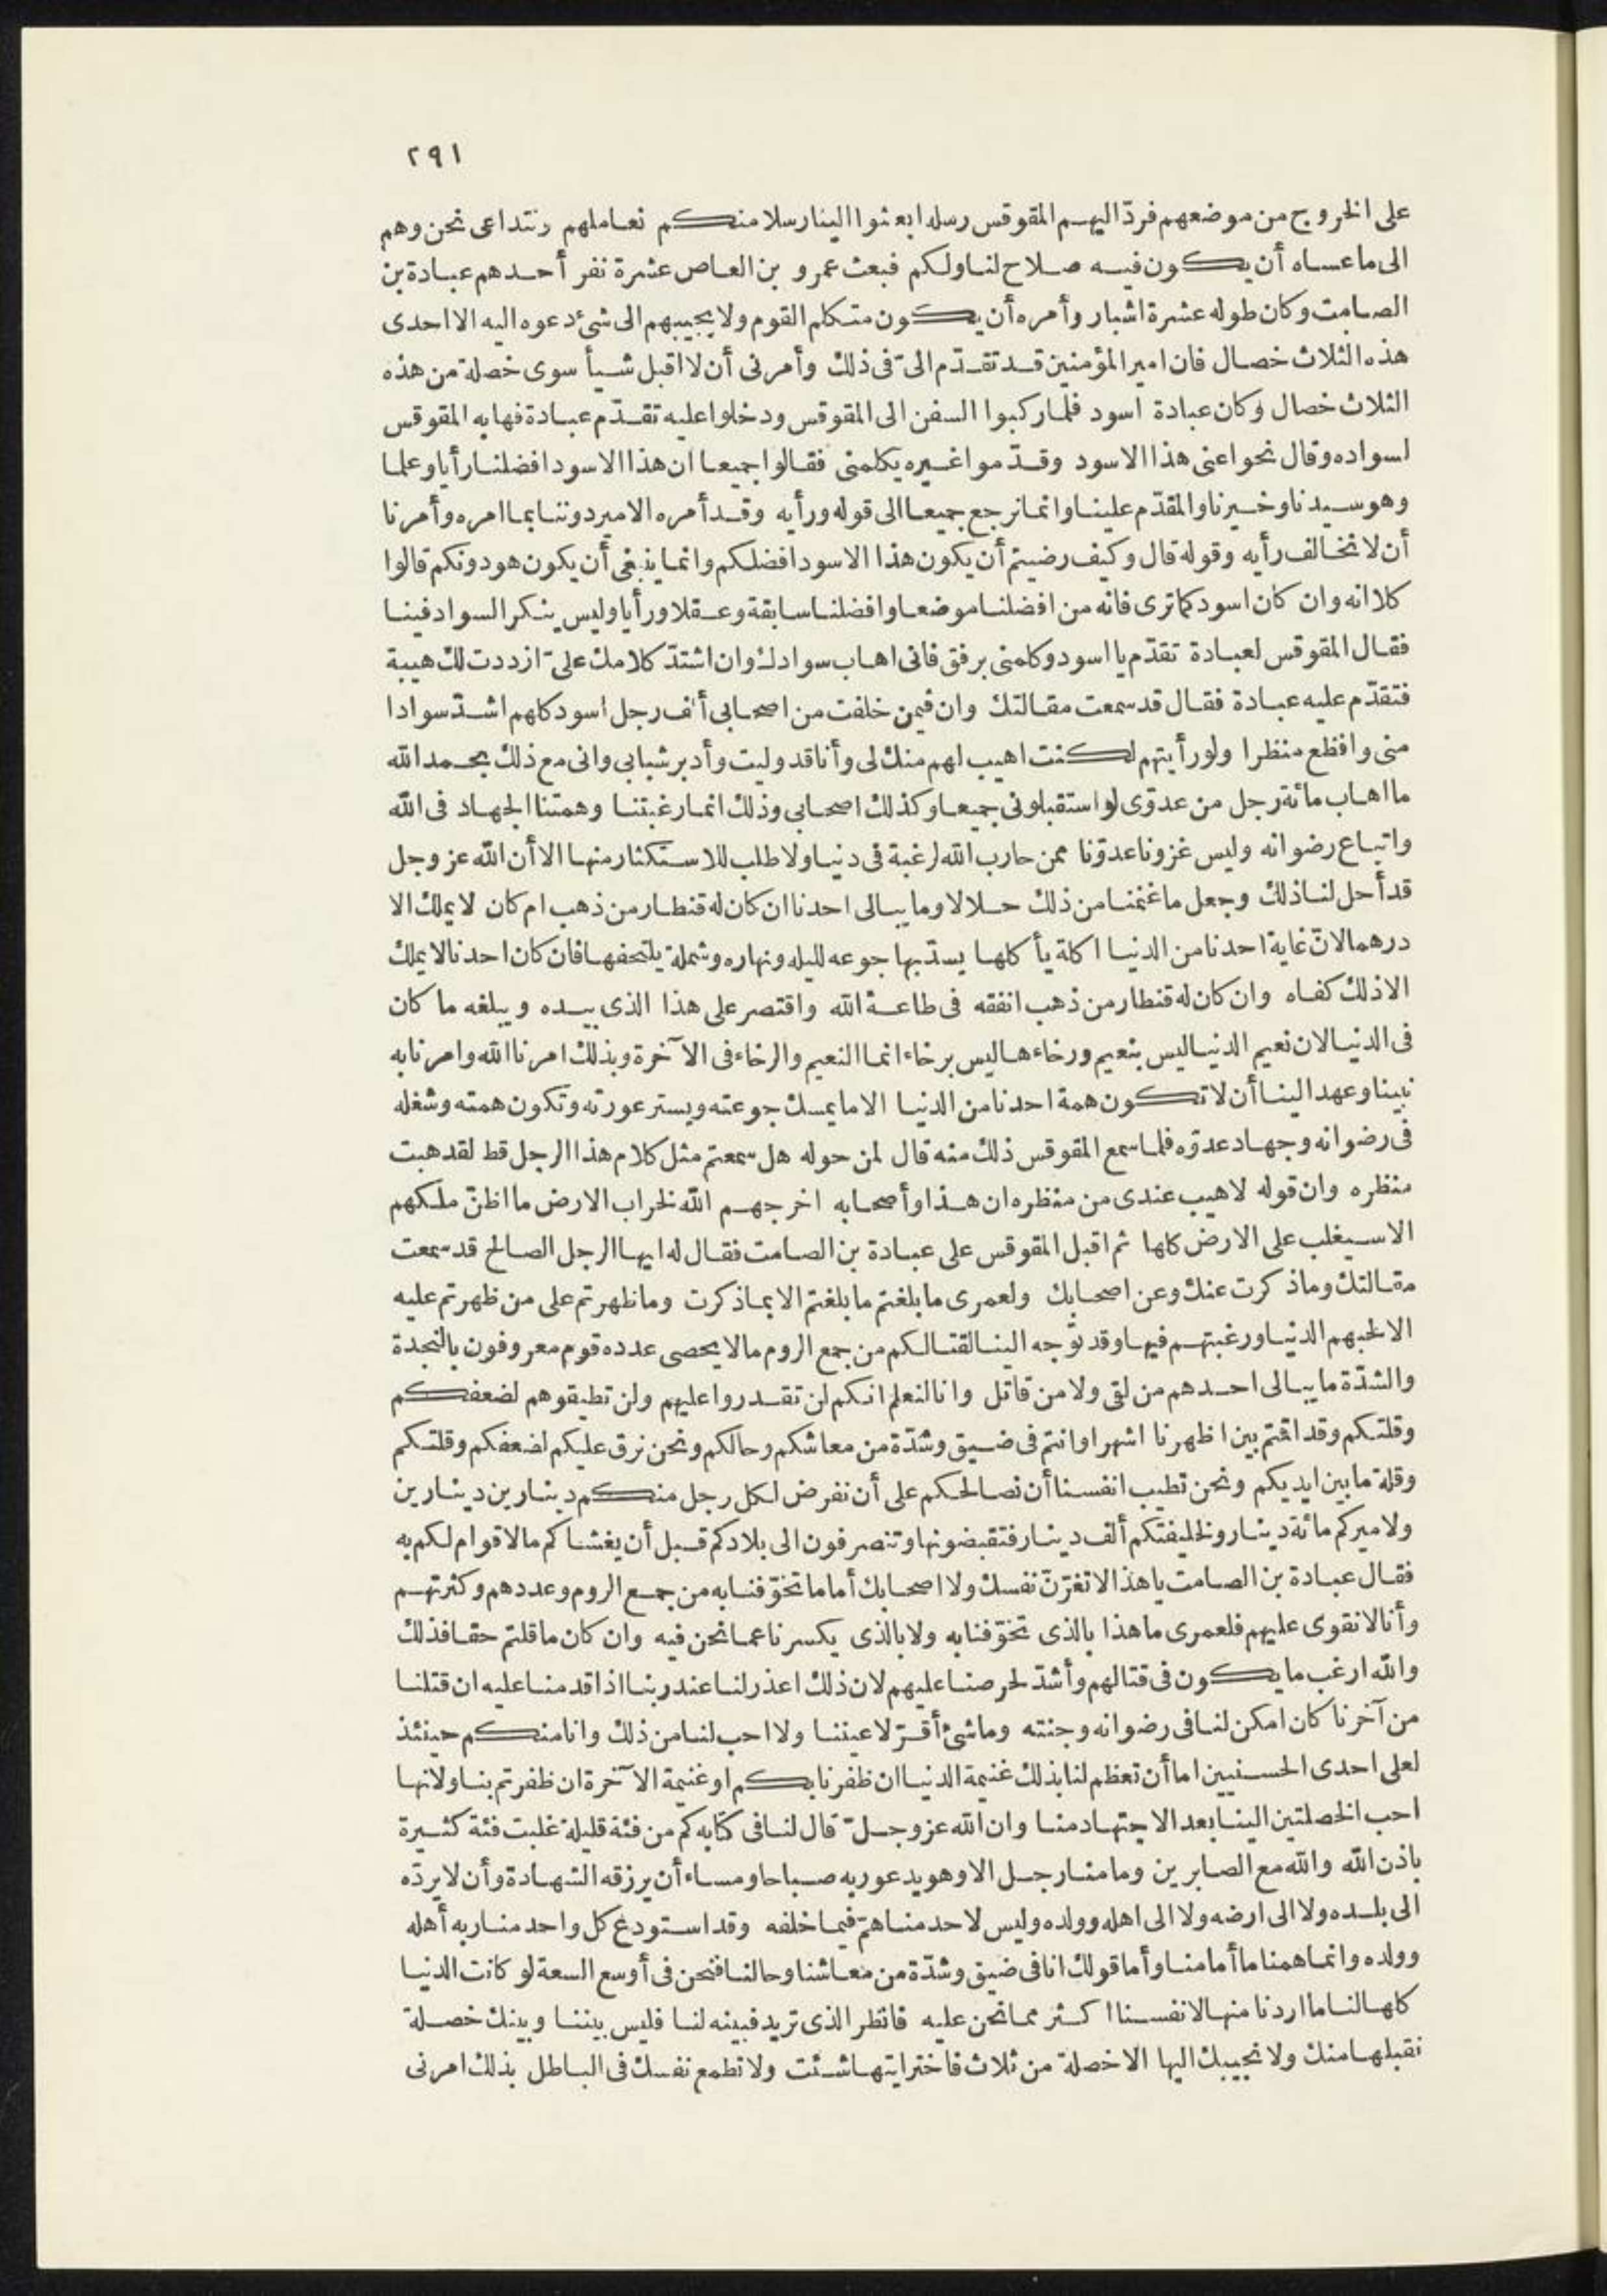 ٢٩١
على الخروج من موضعهم فردّ اليهم المقوقس رسله ابعثوا الينا رسلا منكم نعاملهم ونتداعى نحن وهم
الى ما عساه أن يكون فيه صلاح لنا ولكم فبعث عمرو بن العاص عشرة نفر أحدهم عبادة بن
الصامت وكان طوله عشرة اشبار وأمره أن يكون متكلم القوم ولا يجيبهم الى شئ دعوه اليه الا احدى
هذه الثلاث خصال فان امير المؤمنين قد تقدّم الىّ فى ذلك وأمرنى أن لا اقبل شيأ سوى خصلة من هذه
الثلاث خصال وكان عبادة اسود فلما ركبوا السفن الى المقوقس ودخلوا عليه تقدّم عبادة فهابه المقوقس
لسواده وقال نحوا عنى هذا الاسود وقدّموا غيره يكلمنى فقالوا جميعا ان هذا الاسود افضلنا رأيا وعلما
وهو سيدنا وخيرنا والمقدّم علينا وانما نرجع جميعا الى قوله ورأيه وقد أمره الامير دوننا بما امره وأمرنا
أن لا نخالف رأيه وقوله قال وكيف رضيتم أن يكون هذا الاسود افضلكم وانما ينبغى أن يكون هو دونكم قالوا
كلا انه وان كان اسود كما ترى فانه من افضلنا موضعا وافضلنا سابقة وعقلا ورأيا وليس ينكر السواد فينا
فقال المقوقس لعبادة تقدّم يا اسود وكلمنى برفق فانى اهاب سوادك وان اشتدّ كلامك علىّ ازددت لك هيبة
فتقدّم عليه عبادة فقال قد سمعت مقالتك وان فيمن خلفت من اصحابى ألف رجل اسود كلهم اشدّ سوادا
منى وافظع منظرا ولو رأيتهم لكنت اهيب لهم منك لى وأنا قد وليت وأدبر شبابى وانى مع ذلك بحمد الله
ما اهاب مائة رجل من عدوّى لو استقبلونى جميعا وكذلك اصحابى وذلك انما رغبتنا وهمتنا الجهاد فى الله
واتباع رضوانه وليس غزونا عدوّنا ممن حارب الله لرغبة فى دنيا ولا طلب للاستكثار منها الا أن الله عز وجل
قد أحل لنا ذلك وجعل ما غنمنا من ذلك حلالا وما يبالى احدنا ان كان له قنطار من ذهب ام كان لا يملك الا
درهما لانّ غاية احدنا من الدنيا اكلة يأكلها يسدّ بها جوعه لليله ونهاره وشملة يلتحفها فان كان احدنا لا يملك
الا ذلك كفاه وان كان له قنطار من ذهب انفقه فى طاعة الله واقتصر على هذا الذى بيده ويبلغه ما كان
فى الدنيا لان نعيم الدنيا ليس بنعيم ورخاءها ليس برخاء انما النعيم والرخاء فى الآخرة وبذلك امرنا الله وامرنا به
نبينا وعهد الينا أن لا تكون همة احدنا من الدنيا الا ما يمسك جوعته ويستر عورته وتكون همته وشغله
فى رضوانه وجهاد عدوّه فلما سمع المقوقس ذلك منه قال لمن حوله هل سمعتم مثل كلام هذا الرجل قط لقد هبت
منظره وان قوله لاهيب عندى من منظره ان هذا وأصحابه اخرجهم الله لخراب الارض ما اظنّ ملكهم
الا سيغلب على الارض كلها ثم اقبل المقوقس على عبادة بن الصامت فقال له ايها الرجل الصالح قد سمعت
مقالتك وما ذكرت عنك وعن اصحابك ولعمرى ما بلغتم ما بلغتم الا بما ذكرت وما ظهرتم على من ظهرتم عليه
الا لحبهم الدنيا ورغبتهم فيها وقد توجه الينا لقتالكم من جمع الروم ما لا يحصى عدده قوم معروفون بالنجدة
والشدّة ما يبالى احدهم من لقى ولا من قاتل وانا لنعلم انكم لن تقدروا عليهم ولن تطيقوهم لضعفكم
وقلتكم وقد اقمتم بين اظهرنا اشهرا وانتم فى ضيق وشدّة من معاشكم وحالكم ونحن نرق عليكم لضعفكم وقلتكم
وقلة ما بين ايديكم ونحن تطيب انفسنا أن نصالحكم على أن نفرض لكل رجل منكم دينارين دينارين
ولاميركم مائة دينار ولخليفتكم ألف دينار فتقبضونها وتنصرفون الى بلادكم قبل أن يغشاكم ما لا قوام لكم به
فقال عبادة بن الصامت يا هذا لا تغرّنّ نفسك ولا اصحابك أما ما تخوّفنا به من جمع الروم وعددهم وكثرتهم
وأنا لا نقوى عليهم فلعمرى ما هذا بالذى تخوّفنا به ولا بالذى يكسرنا عما نحن فيه وان كان ما قلتم حقا فذلك
والله ارغب ما يكون فى قتالهم وأشدّ لحرصنا عليهم لان ذلك اعذر لنا عند ربنا اذا قدمنا عليه ان قتلنا
من آخرنا كان امكن لنا فى رضوانه وجنته وما شئ أقرّ لاعيننا ولا احب لنا من ذلك وانا منكم حينئذ
لعلى احدى الحسنيين اما أن تعظم لنا بذلك غنيمة الدنيا ان ظفرنا بكم او غنيمة الآخرة ان ظفرتم بنا ولانها
احب الخصلتين الينا بعد الاجتهاد منا وان الله عز وجلّ قال لنا فى كتابه كم من فئة قليلة غلبت فئة كثيرة
باذن الله والله مع الصابرين وما منا رجل الا وهو يدعو ربه صباحا ومساء أن يرزقه الشهادة وأن لا يردّه
الى بلده ولا الى ارضه ولا الى اهله وولده وليس لاحد منا همّ فيما خلفه وقد استودع كل واحد منا ربه أهله
وولده وانما همنا ما أمامنا وأما قولك انا فى ضيق وشدّة من معاشنا وحالنا فنحن فى أوسع السعة لو كانت الدنيا
كلها لنا ما اردنا منها لانفسنا اكثر مما نحن عليه فانظر الذى تريد فبينه لنا فليس بيننا وبينك خصلة
نقبلها منك ولا نجيبك اليها الا خصلة من ثلاث فاختر ايتها شئت ولا تطمع نفسك فى الباطل بذلك امرنى